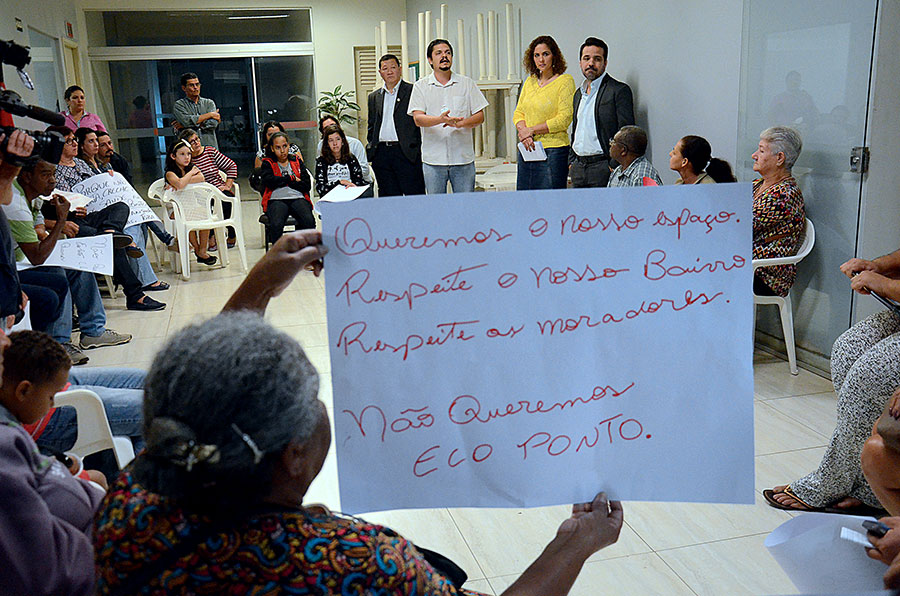 Queremos o nosso espaço.
Respeite o nosso Bairro
Respeite os moradores.
Não Queremos
ECO PONTO.
PORQUE NA
CRECHE